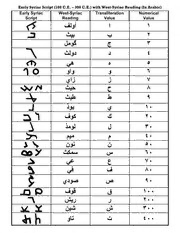 Early Syriac Script (100 C.E. – 300 C.E.) with West-Syriac Reading (In Arabic)
Early Syriac Script West-Syriac Reading Transliteration Value Numerical Value
أولف ا ١
بيث ب ٢
گومل گ ٣
دولث د ٤
هي ه ٥
واو و ٦
زين ز ٧
حيث ح ٨
طيث ط ٩
يوذ ي ١٠
كوف ك ٢٠
لومذ ل ٣٠
ميم م ٤٠
نون ن ٥٠
سمكث س ٦٠
عي ع ٧٠
في ف ٨٠
صودي ص ٩٠
قوف ق ١٠٠
ريش ر ٢٠٠
شين ش ٣٠٠
تاو ت ٤٠٠